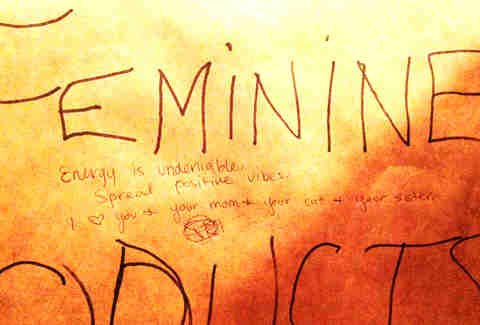 FEMININE
Energy is undeniable.
Spread positive vibes.
I ♡ you + your mom + your cat + your sister.
ODUCTS